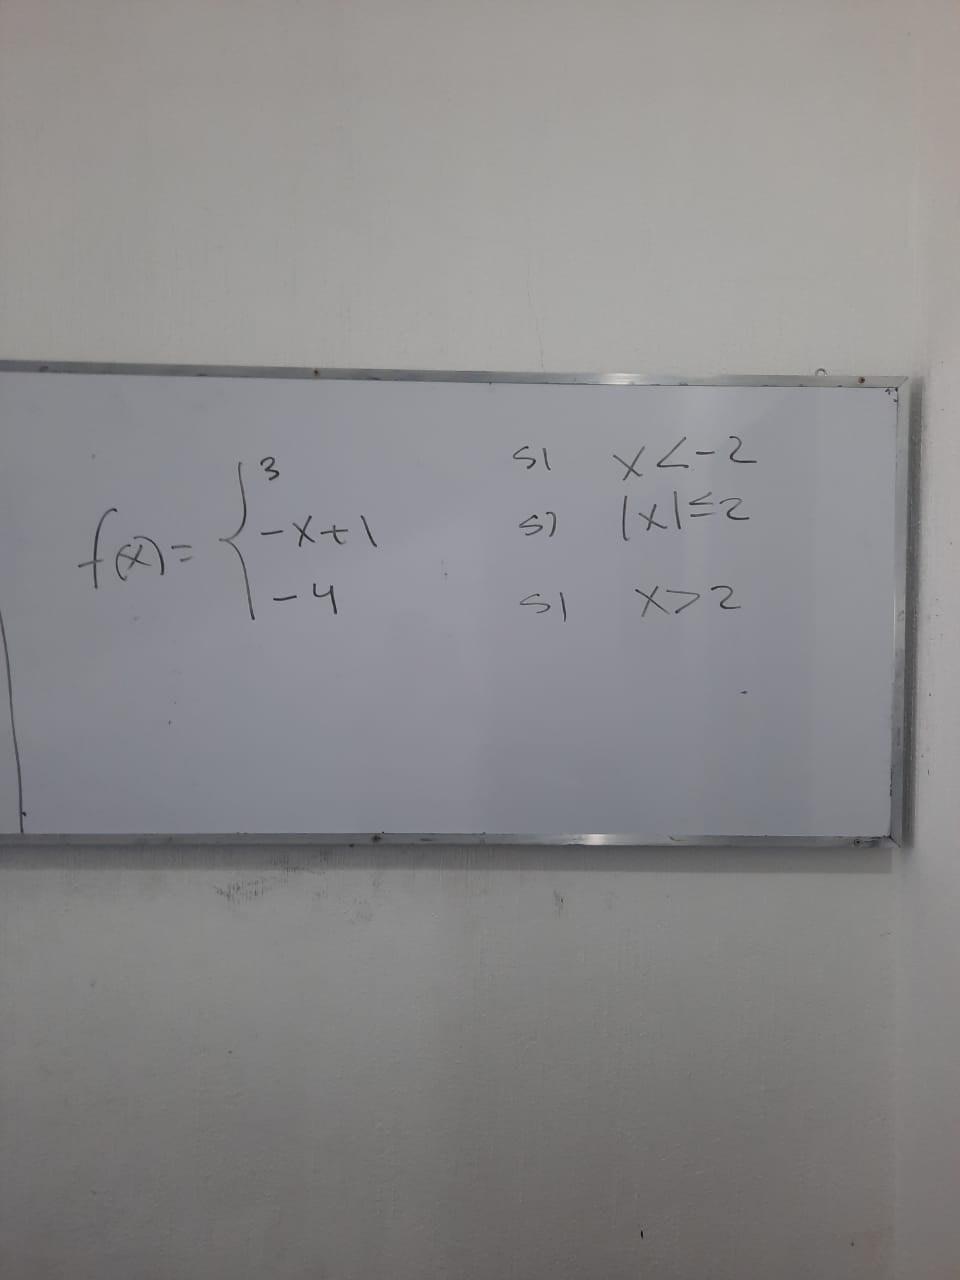 f(x) = { 3 si x < -2
-x+1 si |x| ≤ 2
-4 si x > 2